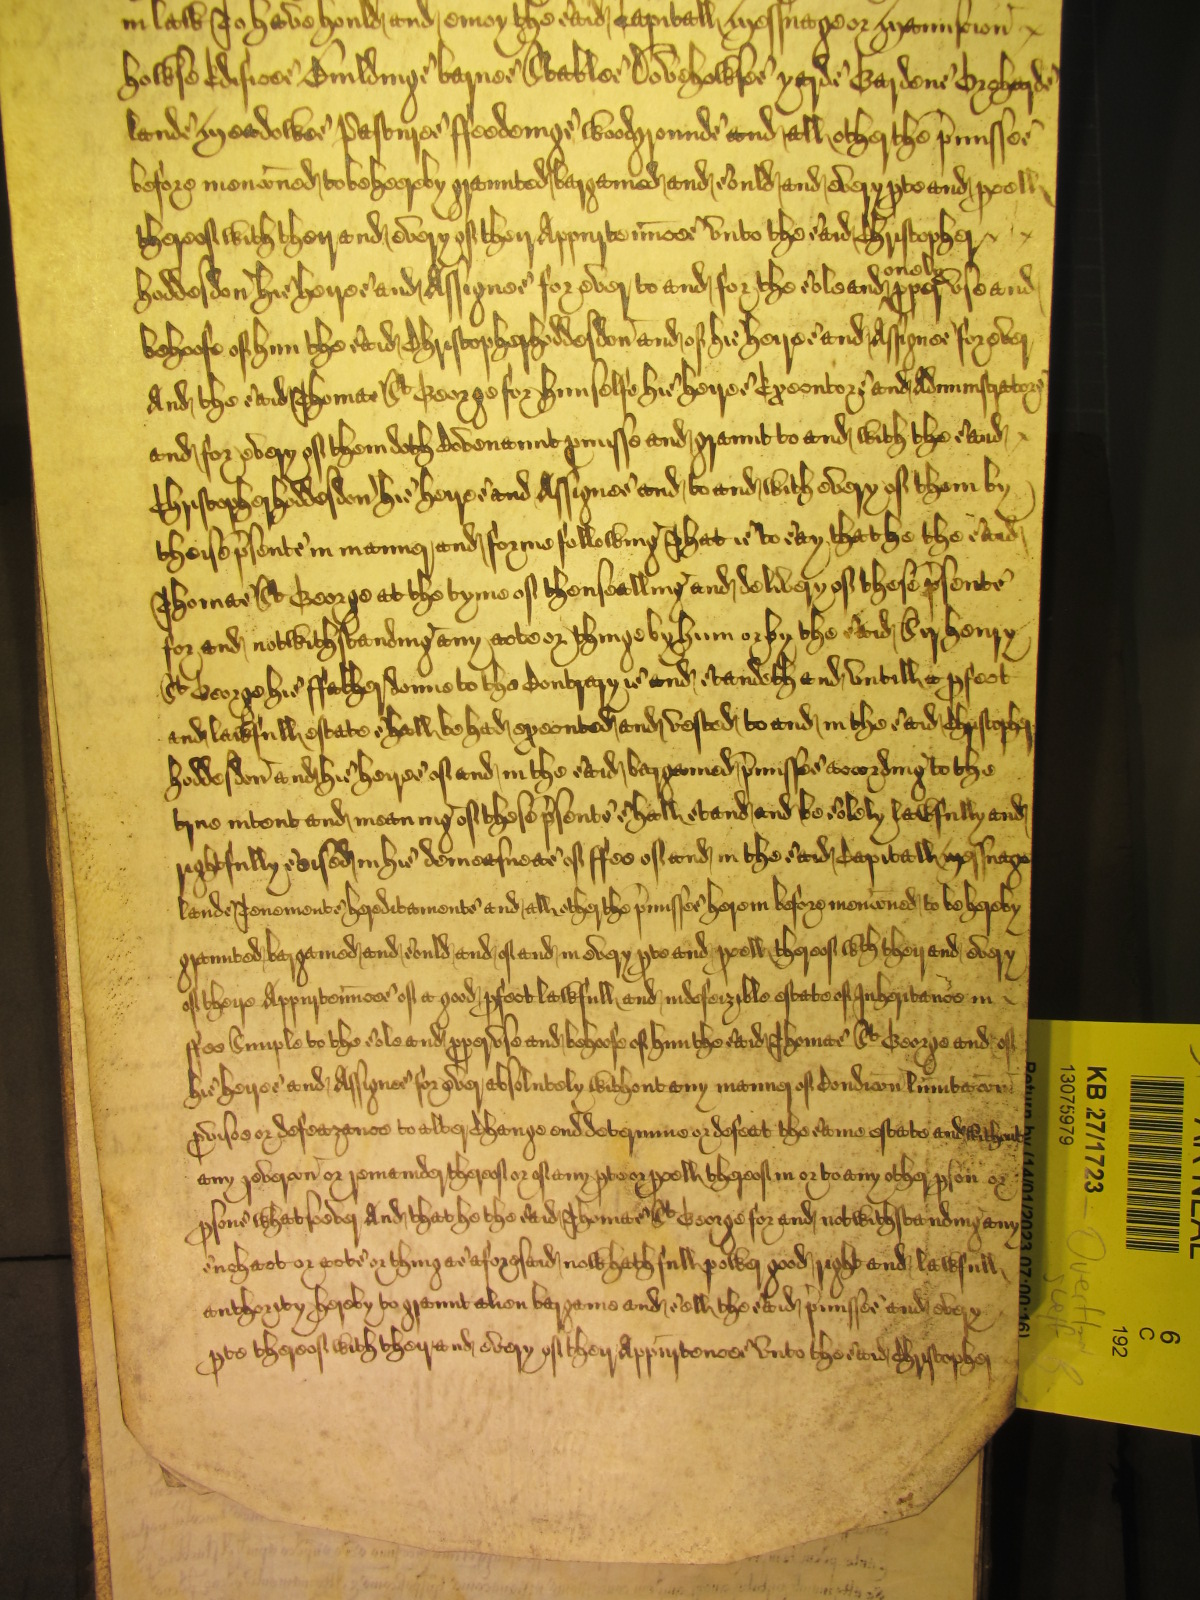 in lawe To have hould and enioy the said Capitall Messuage or Mannsion
howse Edifices Buildinges barnes Stables Dovehowses yardes Gardens Orchardes
landes Meadowes Pastures ffeedinges woodgroundes and all other the p'misses
before menconed to be hereby graunted bargained and sould and every pte and pcell
thereof with their and every of their Appurtennces vnto the said Christopher
hoddesdon his heires and Assignes for ever to and for the sole and onely pper vse and
behoofe of him the said Christopher hoddesdon and of his heires and Assignes for ever
And the said Thomas St George for himselfe his heires Executors and Administrators
and for every of them doth Covenaunt pmisse and graunt to and with the said
Christopher hoddesdon his heires and Assignes and to and with every of them by
theise p'sentes in manner and forme following That is to say that he the said
Thomas St George at the tyme of thensealling and delivery of these p'sentes
for and notwithstanding any acte or thinge by him or by the said Sir Henry
St George his ffather donne to the Contrary is and standeth and vntill a pfect
and lawfull estate shall be had executed and vested to and in the said Christopher
hoddesdon and his heires of and in the said bargained p'misses according to the
true intent and meaning of these p'sentes shall stand and be solely lawfully and
rightfully seised in his demeasne as of ffee of and in the said Capitall Messuage
landes Tenementes hereditamentes and all other the p'misses herein before menconed to be hereby
graunted bargained and sould and of and in every pte and pcell thereof wth their and every
of theire Appurtennces of a good pfect lawfull and indefeizible estate of Inheritance in
ffee Simple to the sole and pper vse and behoofe of him the said Thomas St George and of
his heires and Assignes for ever absolutely without any manner of Condicon limitacon
pvisoe or defeazance to alter Change end determine or defeat the same estate and without
any revercon or remainder thereof or of any pte or pcell thereof in or to any other pson or
psons whatsoever And that he the said Thomas St George for and notwithstanding any
such act or actes or thing as aforesaid now hath full power good right and lawfull
authority hereby to graunt alien bargaine and sell the said p'misses and every
pte thereof with their and every of their Appurtences vnto the said Christopher
KB 27/1723
13075979
Return by (14/01/2023 07:00:46)
6
C
192